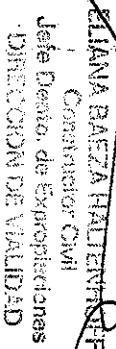 ELIANA BAEZA
Constructor Civil
Jefe Depto. de Expropiaciones
DIRECCION DE VIALIDAD